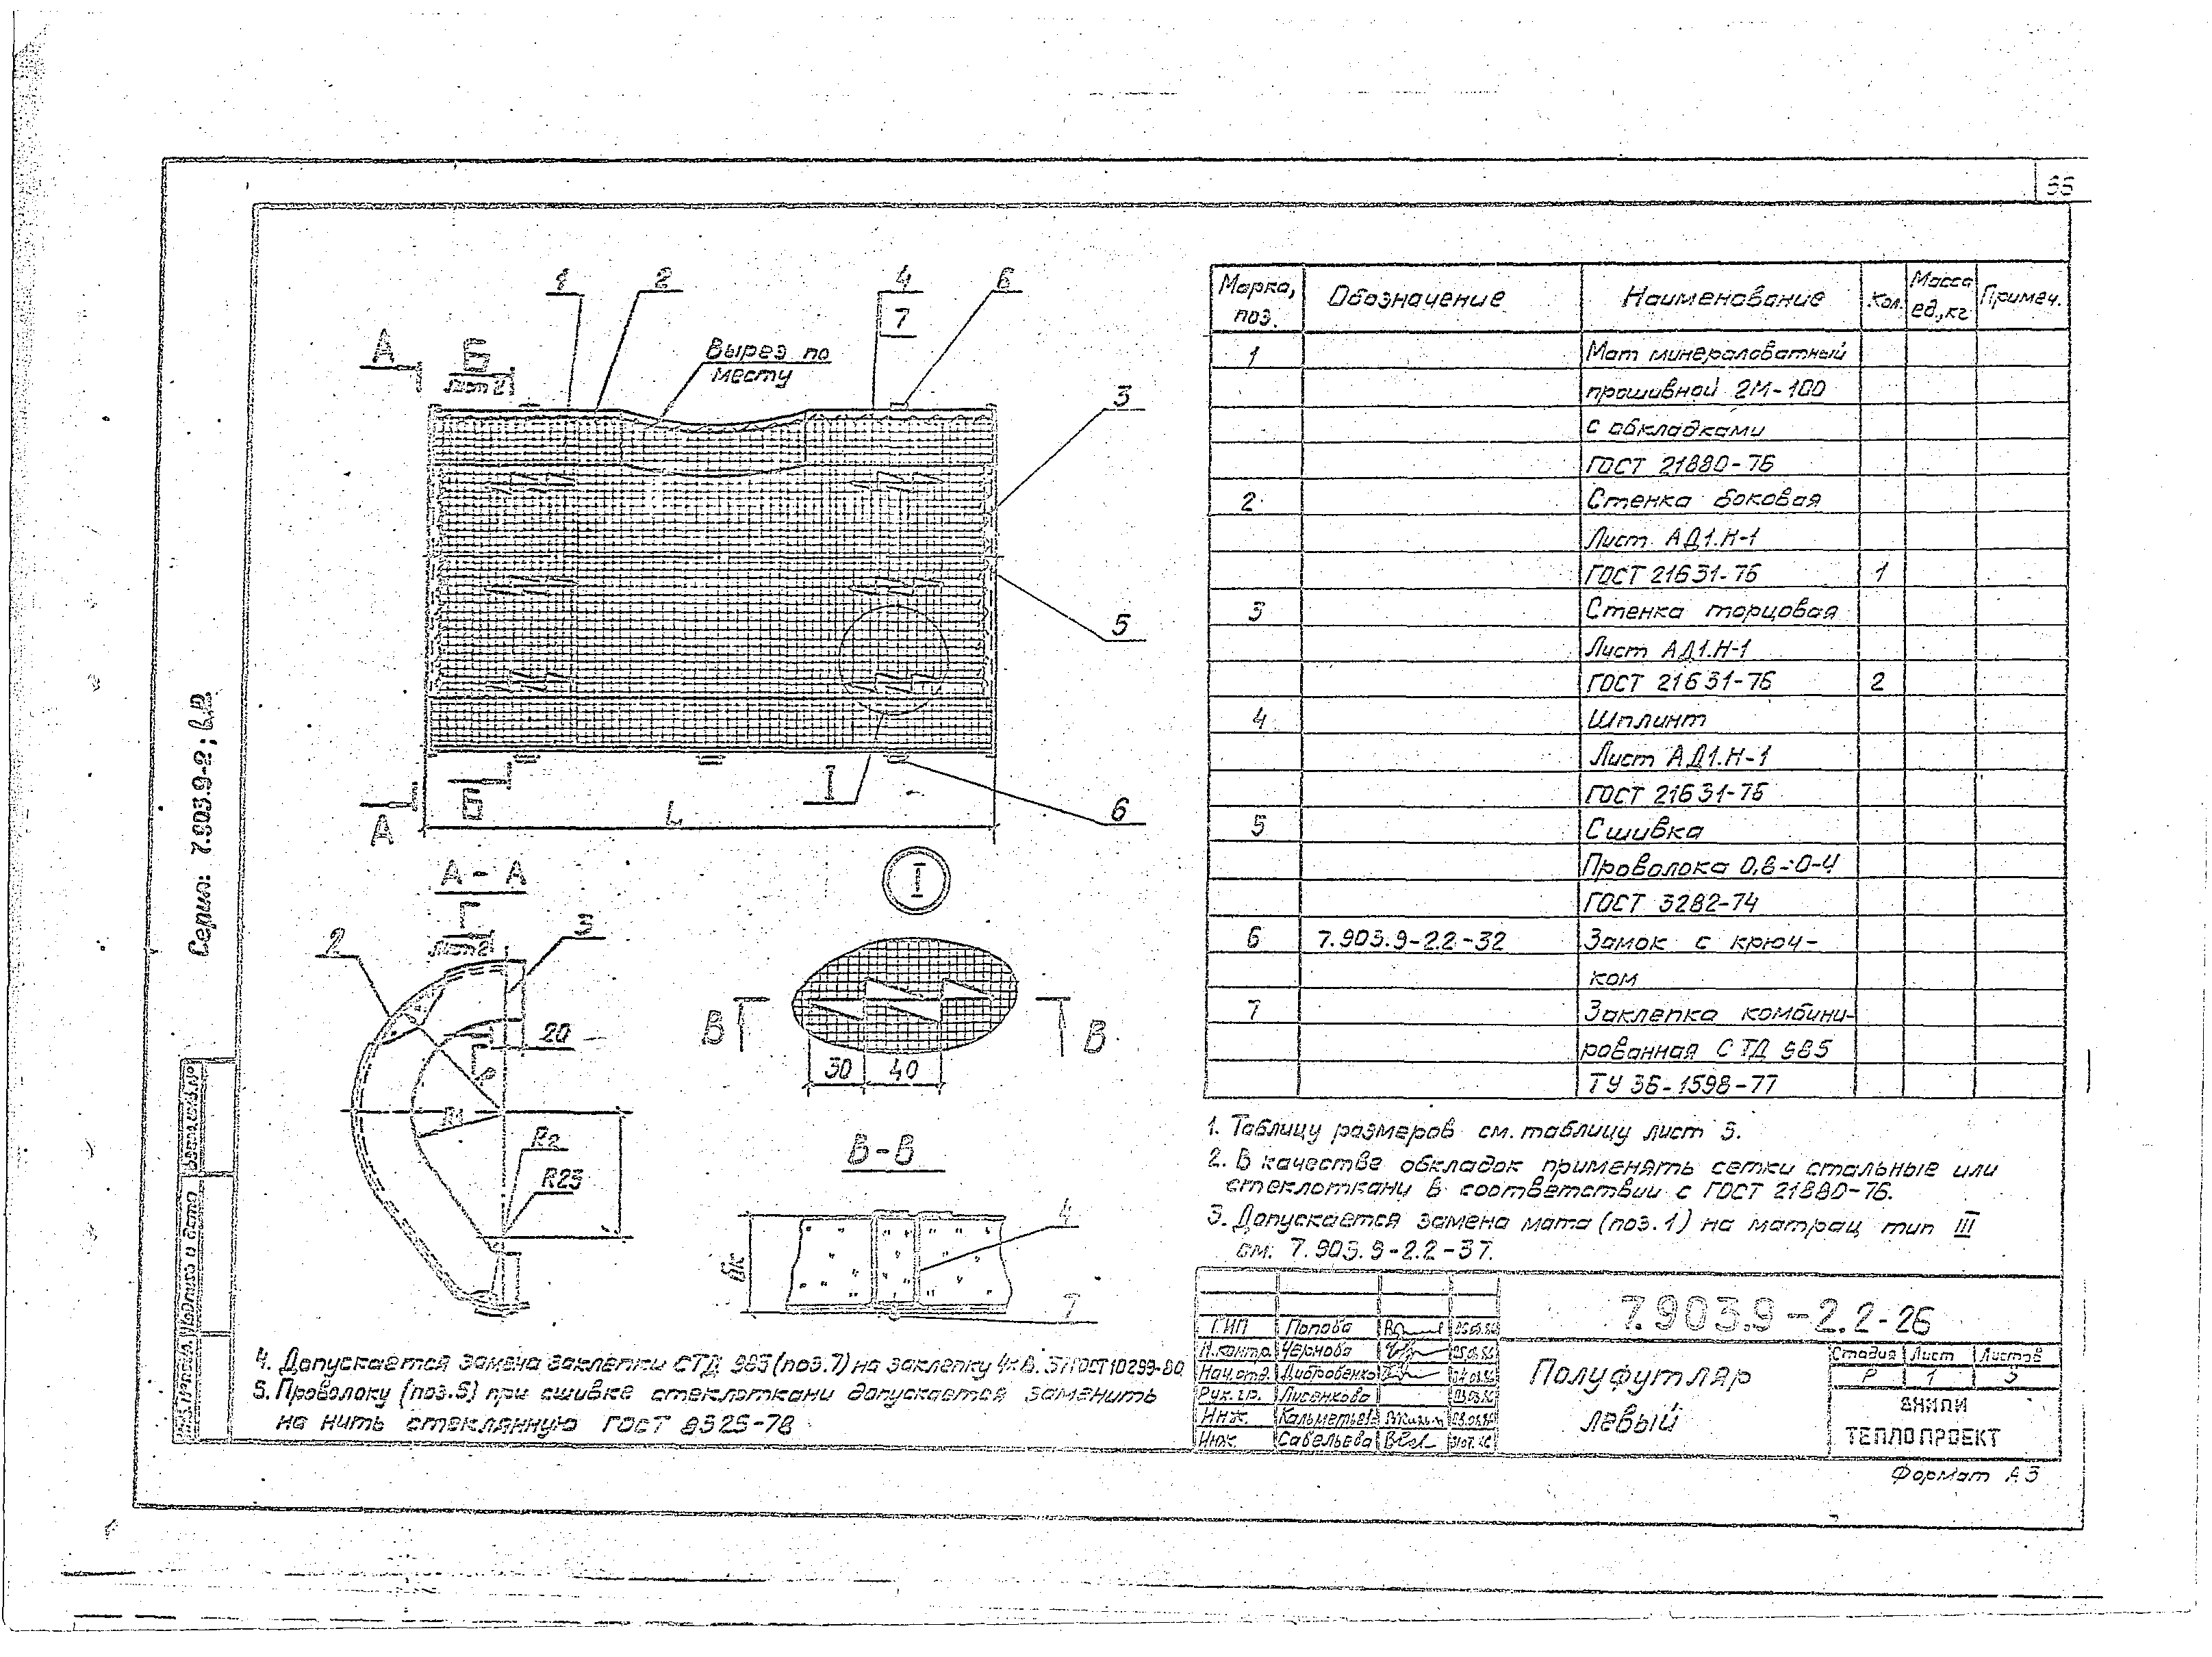 А
Б
Лист 2
1
2
4
7
6
Вырез по
месту
3
5
6
I
L
Б
А
А-А
Г
Лист 2
2
3
20
R1
R2
R23
I
В
В
30
40
В-В
δк
4
7
Марка, поз. Обозначение Наименование Кол. Масса ед.,кг Примеч.
1 Мат минераловатный
прошивной 2М-100
с обкладками
ГОСТ 21880-76
2 Стенка боковая
Лист АД1.Н-1
ГОСТ 21631-76 1
3 Стенка торцовая
Лист АД1.Н-1
ГОСТ 21631-76 2
4 Шплинт
Лист АД1.Н-1
ГОСТ 21631-76
5 Сшивка
Проволока 0,8-0-Ч
ГОСТ 3282-74
6 7.903.9-2.2-32 Замок с крюч-
ком
7 Заклепка комбини-
рованная СТД 985
ТУ 36-1598-77
1. Таблицу размеров см. таблицу лист 3.
2. В качестве обкладок применять сетки стальные или
стеклоткани в соответствии с ГОСТ 21880-76.
3. Допускается замена мата (поз.1) на матрац тип III
см. 7.903.9-2.2-37.
4. Допускается замена заклепки СТД 985 (поз.7) на заклепку ГОСТ 10299-80
5. Проволоку (поз.5) при сшивке стеклоткани допускается заменить
на нить стеклянную ГОСТ 8325-78
Серия: 7.903.9-2;
Взам. инв. №
Подпись и дата
Инв. № подл.
7.903.9-2.2-26
ГИП Попова
Н.контр. Чернова
Нач.отд.
Рук. гр. Лисенкова
Инж.
Инж. Савельева
Полуфутляр
левый
Стадия Лист Листов
Р 1 3
ВНИПИ
ТЕПЛОПРОЕКТ
Формат А3